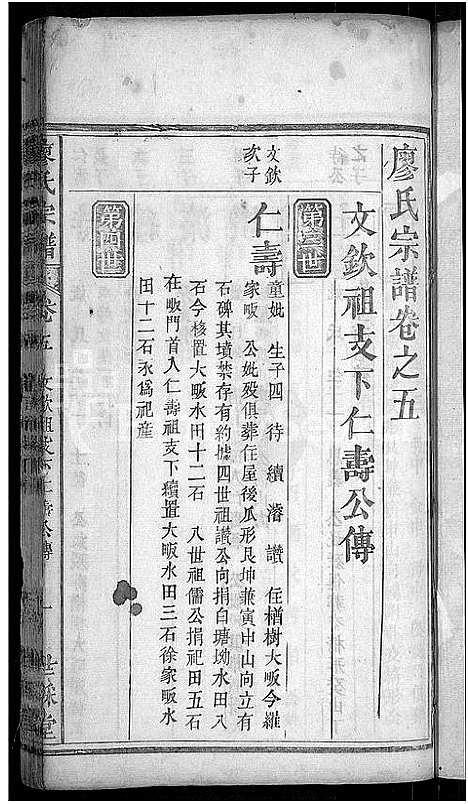 廖氏宗譜卷之五
文欽祖支下仁壽公傳
第三世
文欽
次子
仁壽
童妣 生子四 待 續 濬 讚 住楢樹大畈今羅
家畈 公妣歿俱葬住屋後瓜形艮坤兼寅申山向立有
石碑其墳禁存有約據四世祖讚公向捐白塘坳水田八
石今移置大畈水田十二石 八世祖儒公捐祀田五石
在畈門首入仁壽祖支下續置大畈水田三石徐家畈水
田十二石永爲祀産
第四世
廖氏宗譜
卷五 文欽祖支下仁壽公傳
一
世綵堂